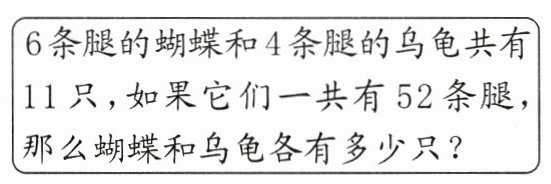 6条腿的蝴蝶和4条腿的乌龟共有
11只,如果它们一共有52条腿,
那么蝴蝶和乌龟各有多少只?